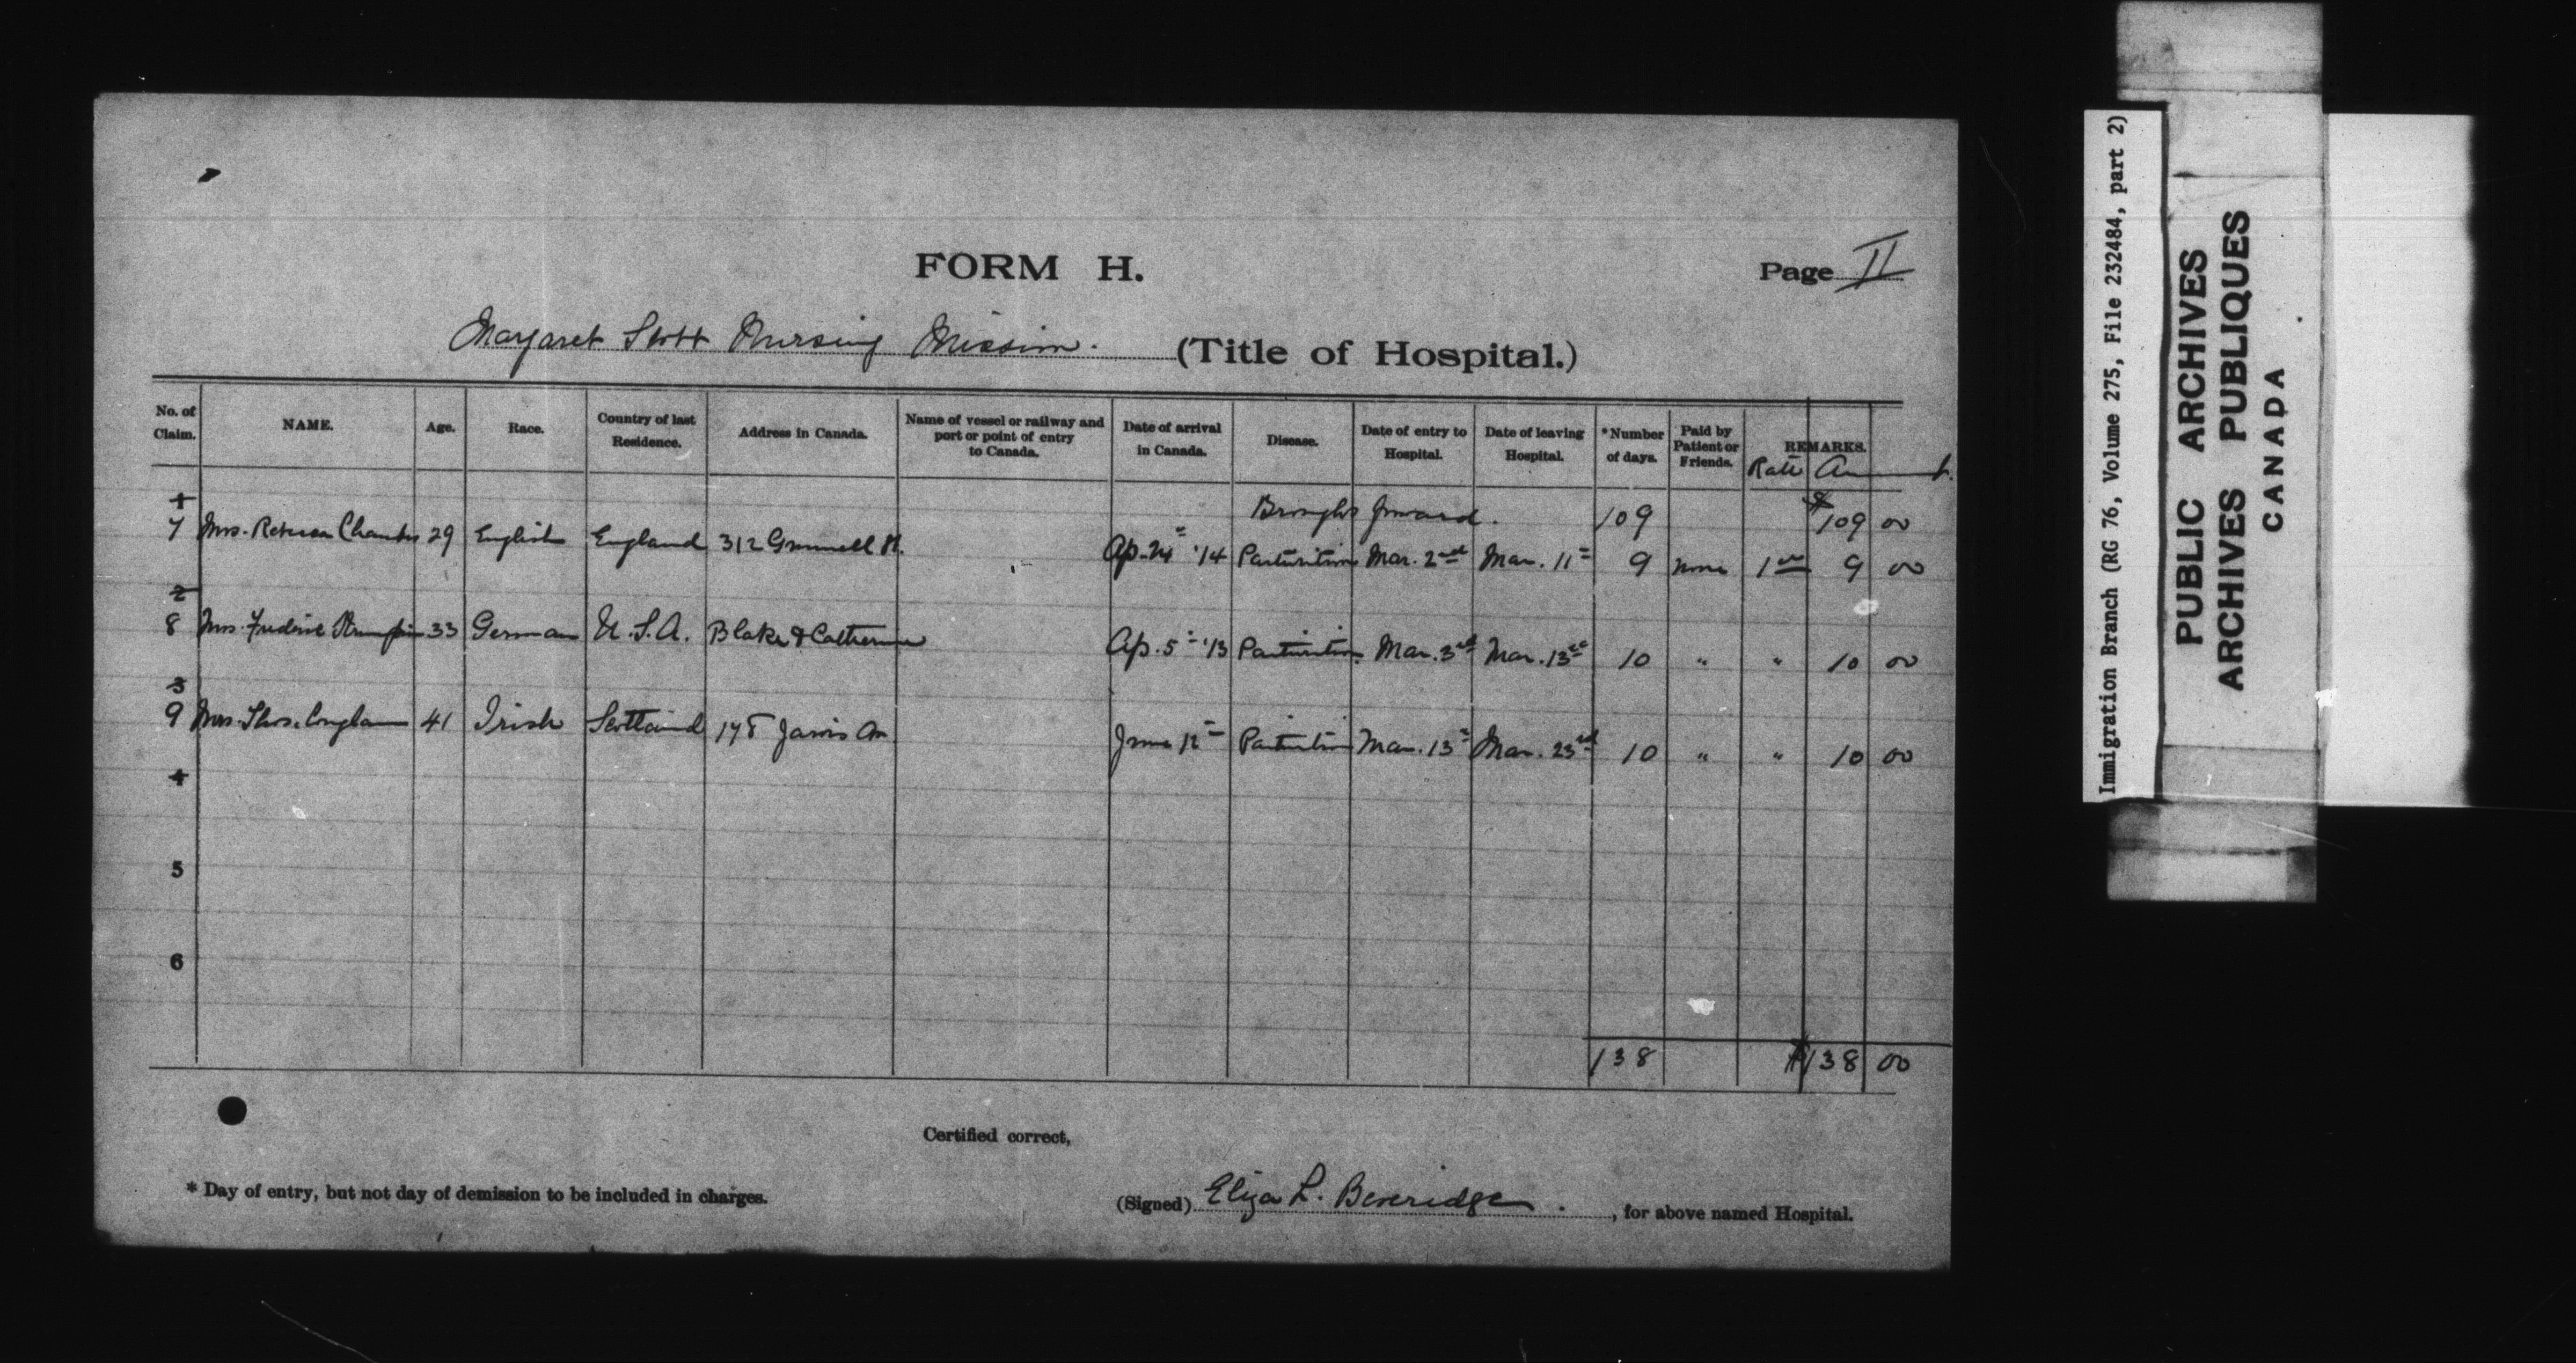 FORM H.
Page II
Margaret Scott Nursing Mission. (Title of Hospital.)
No. of Claim. NAME. Age. Race. Country of last Residence. Address in Canada. Name of vessel or railway and port or point of entry to Canada. Date of arrival in Canada. Disease. Date of entry to Hospital. Date of leaving Hospital. *Number of days. Paid by Patient or Friends. REMARKS.
Rate Amount.
1 Brought forward. 109 $109 00
7 Mrs. 29 English England 312 Ap. 24 '14 Parturition Mar. 2nd Mar. 11 9 none 1 00 9 00
2
8 Mrs. 33 German U.S.A. Blake & Catherine Ap. 5 '13 Parturition Mar. 3rd Mar. 13 10 " " 10 00
3
9 Mrs. Thos. 41 Irish Scotland 178 Jarvis Av. June 12 Parturition Mar. 13 Mar. 23rd 10 " " 10 00
4
5
6
138 $138 00
Certified correct,
* Day of entry, but not day of demission to be included in charges.
(Signed) Eliza L. Beveridge. , for above named Hospital.
Immigration Branch (RG 76, Volume 275, File 232484, part 2)
PUBLIC ARCHIVES
ARCHIVES PUBLIQUES
CANADA